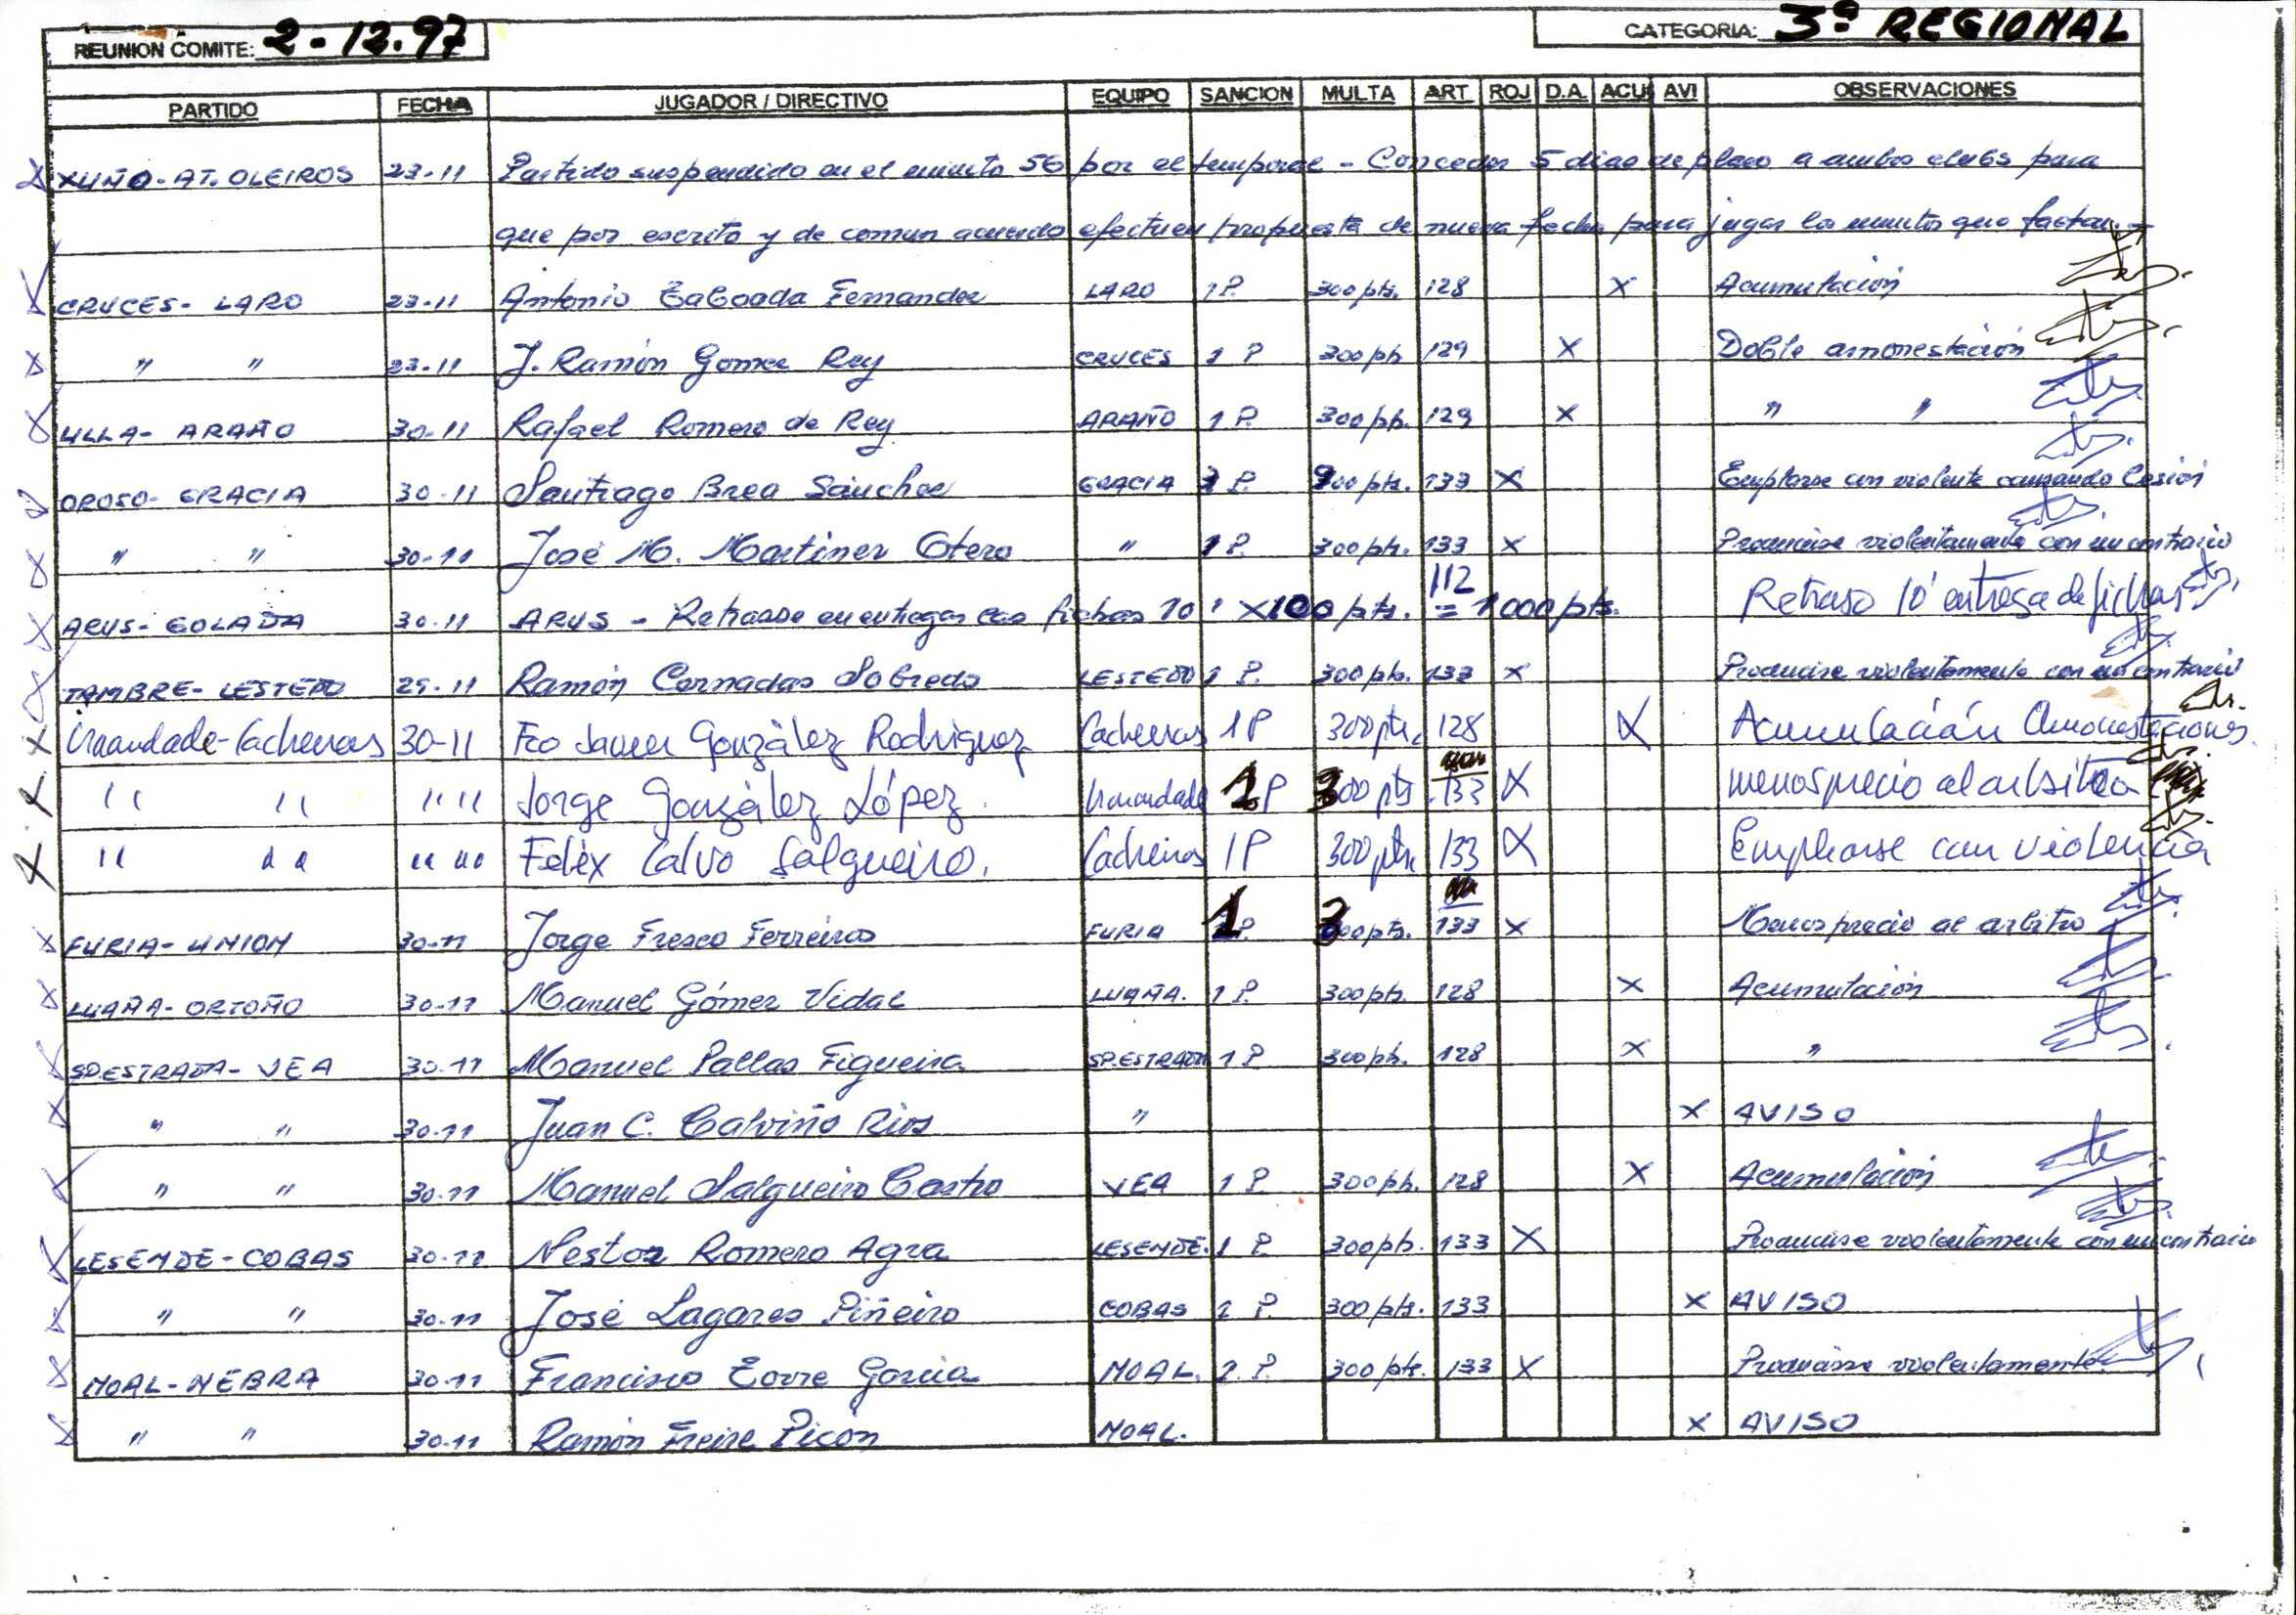 REUNION COMITE: 2-12.97 CATEGORIA: 3ª REGIONAL
PARTIDO FECHA JUGADOR / DIRECTIVO EQUIPO SANCION MULTA ART ROJ D.A. ACU AVI OBSERVACIONES
XUÑO-AT.OLEIROS 23-11 Partido suspendido en el minuto 56 por el temporal - Conceder 5 dias de plazo a ambos clubs para
que por escrito y de comun acuerdo efectuen propuesta de nueva fecha para jugar los minutos que faltan.
CRUCES- LARO 23-11 Antonio Taboada Fernandez LARO 1 P. 300 pts. 128 X Acumulación
" " 23-11 J. Ramón Gomez Rey CRUCES 1 P 300 pts 129 X Doble amonestación
ULLA- ARAÑO 30-11 Rafael Romero de Rey ARAÑO 1 P. 300 pts. 129 X " "
OROSO- GRACIA 30-11 Santiago Brea Sánchez GRACIA P. 900 pts. 133 X Emplearse con violencia causando lesión
" " 30-11 José M. Martinez Otero " 1 P. 300 pts. 133 X Producirse violentamente con un contrario
ARUS- GOLADA 30-11 ARUS - Retraso en entregar las fichas 10' X100 pts. = 1000 pts. 112 Retraso 10' entrega de fichas
TAMBRE- LESTEDO 29-11 Ramón Cernadas Sobredo LESTEDO 1 P. 300 pts. 133 X Producirse violentamente con un contrario
Irmandade-Cacheiras 30-11 Fco Javier González Rodriguez Cacheiras 1P 300 pts. 128 X Acumulación Amonestaciones.
" " " " Jorge González López. Irmandade 1P 300 pts 133 X menosprecio al arbitro
" " " " Felix Calvo Salgueiro. Cacheiras 1P 300 pts 133 X Emplearse con violencia
FURIA- UNION 30-11 Jorge Fresco Ferreiros FURIA 1 P. 300 pts. 133 X Menosprecio al arbitro
LUAÑA- ORTOÑO 30-11 Manuel Gómez Vidal LUAÑA. 1 P. 300 pts. 128 X Acumulación
SP.ESTRADA- VEA 30-11 Manuel Pallas Figueira SP.ESTRADA 1 P. 300 pts. 128 X "
" " 30-11 Juan C. Calviño Rios " X AVISO
" " 30-11 Manuel Salgueiro Castro VEA 1 P. 300 pts. 128 X Acumulación
LESENDE- COBAS 30-11 Nestor Romero Agra LESENDE. 1 P. 300 pts. 133 X Producirse violentamente con un contrario
" " 30-11 José Lagares Piñeiro COBAS 1 P. 300 pts. 133 X AVISO
MOAL-NEBRA 30-11 Francisco Torre Garcia MOAL. 1 P. 300 pts. 133 X Producirse violentamente
" " 30-11 Ramón Freire Picón MOAL. X AVISO